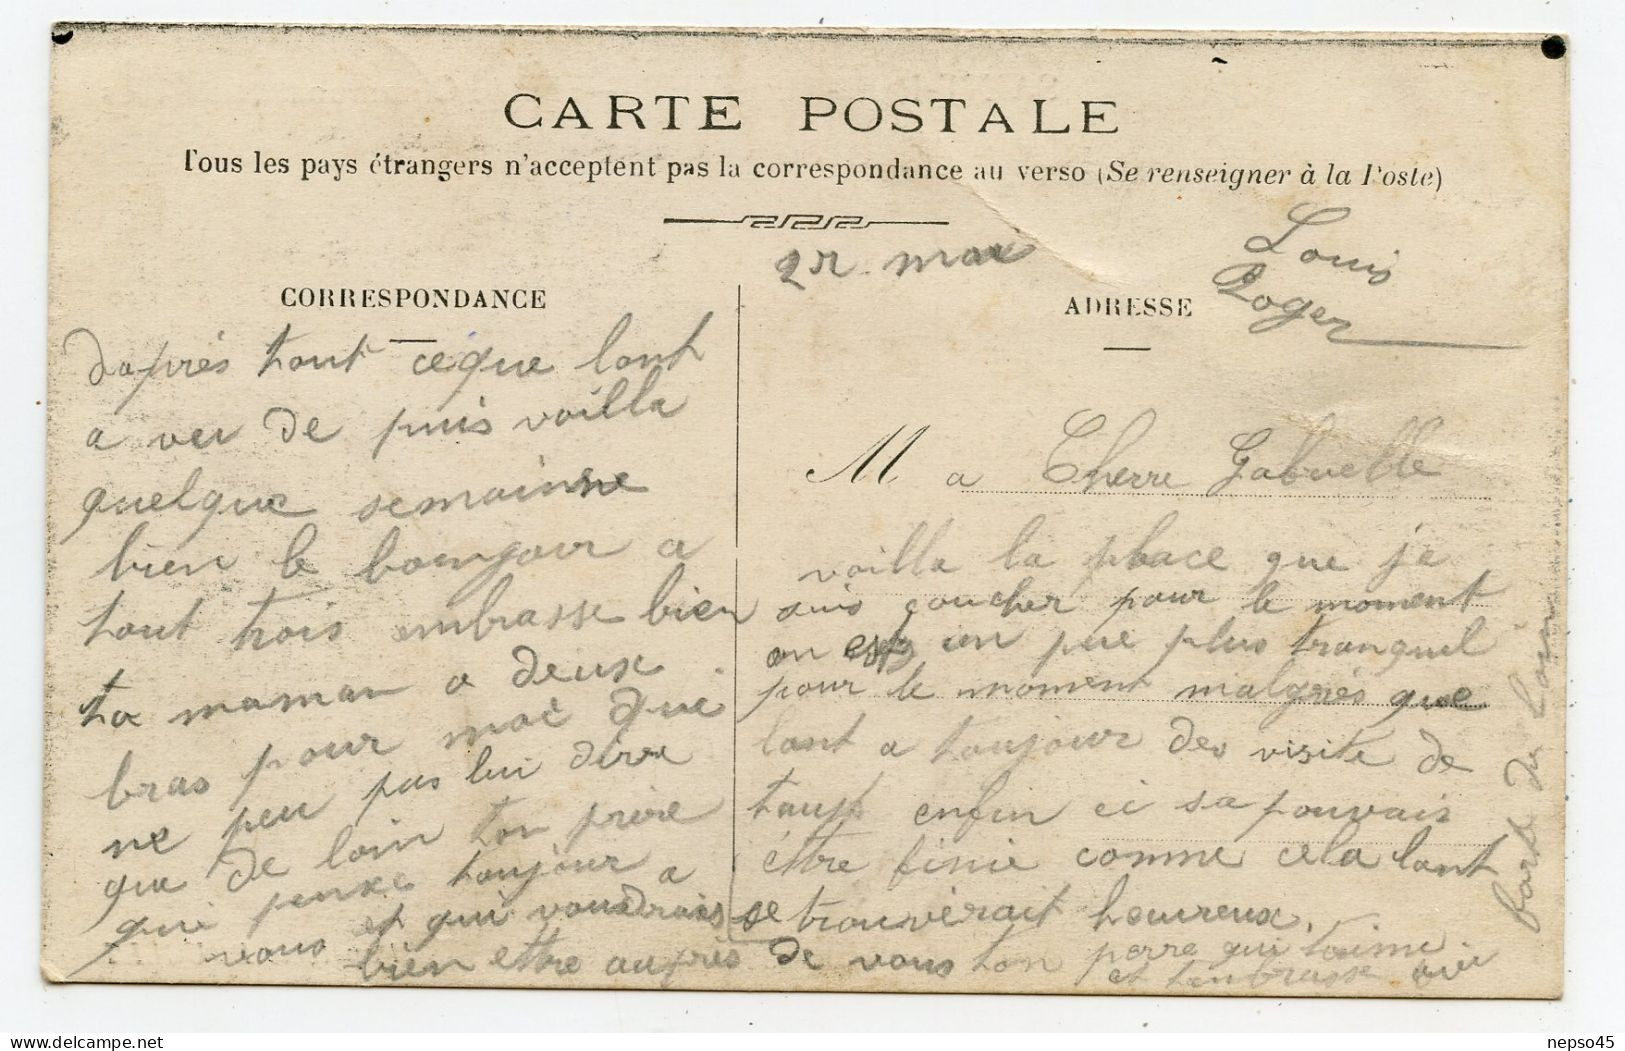 CARTE POSTALE
Tous les pays étrangers n'acceptent pas la correspondance au verso (Se renseigner à la Poste)
Louis
Roger
CORRESPONDANCE
ADRESSE
daprés tout ceque lont
a veu de puis voilla
quelque semainne
bien le bongour a
tout trois embrasse bien
ta maman a deux
bras pour moi qui
ne peu pas lui dire
que de loin ton
qui pense toujour a
vous et qui voudrais
bien ettre auprés de vous ton perre qui taime
et tenbrasse
M a Cherre Gabrielle
voilla la place que je
suis coucher pour le moment
on est un peu plus tranquil
pour le moment malgrés que
lont a toujour des visite de
enfin ci sa pouvais
être finie comme cela lont
se trouverait heureux.
de loin
nepso45